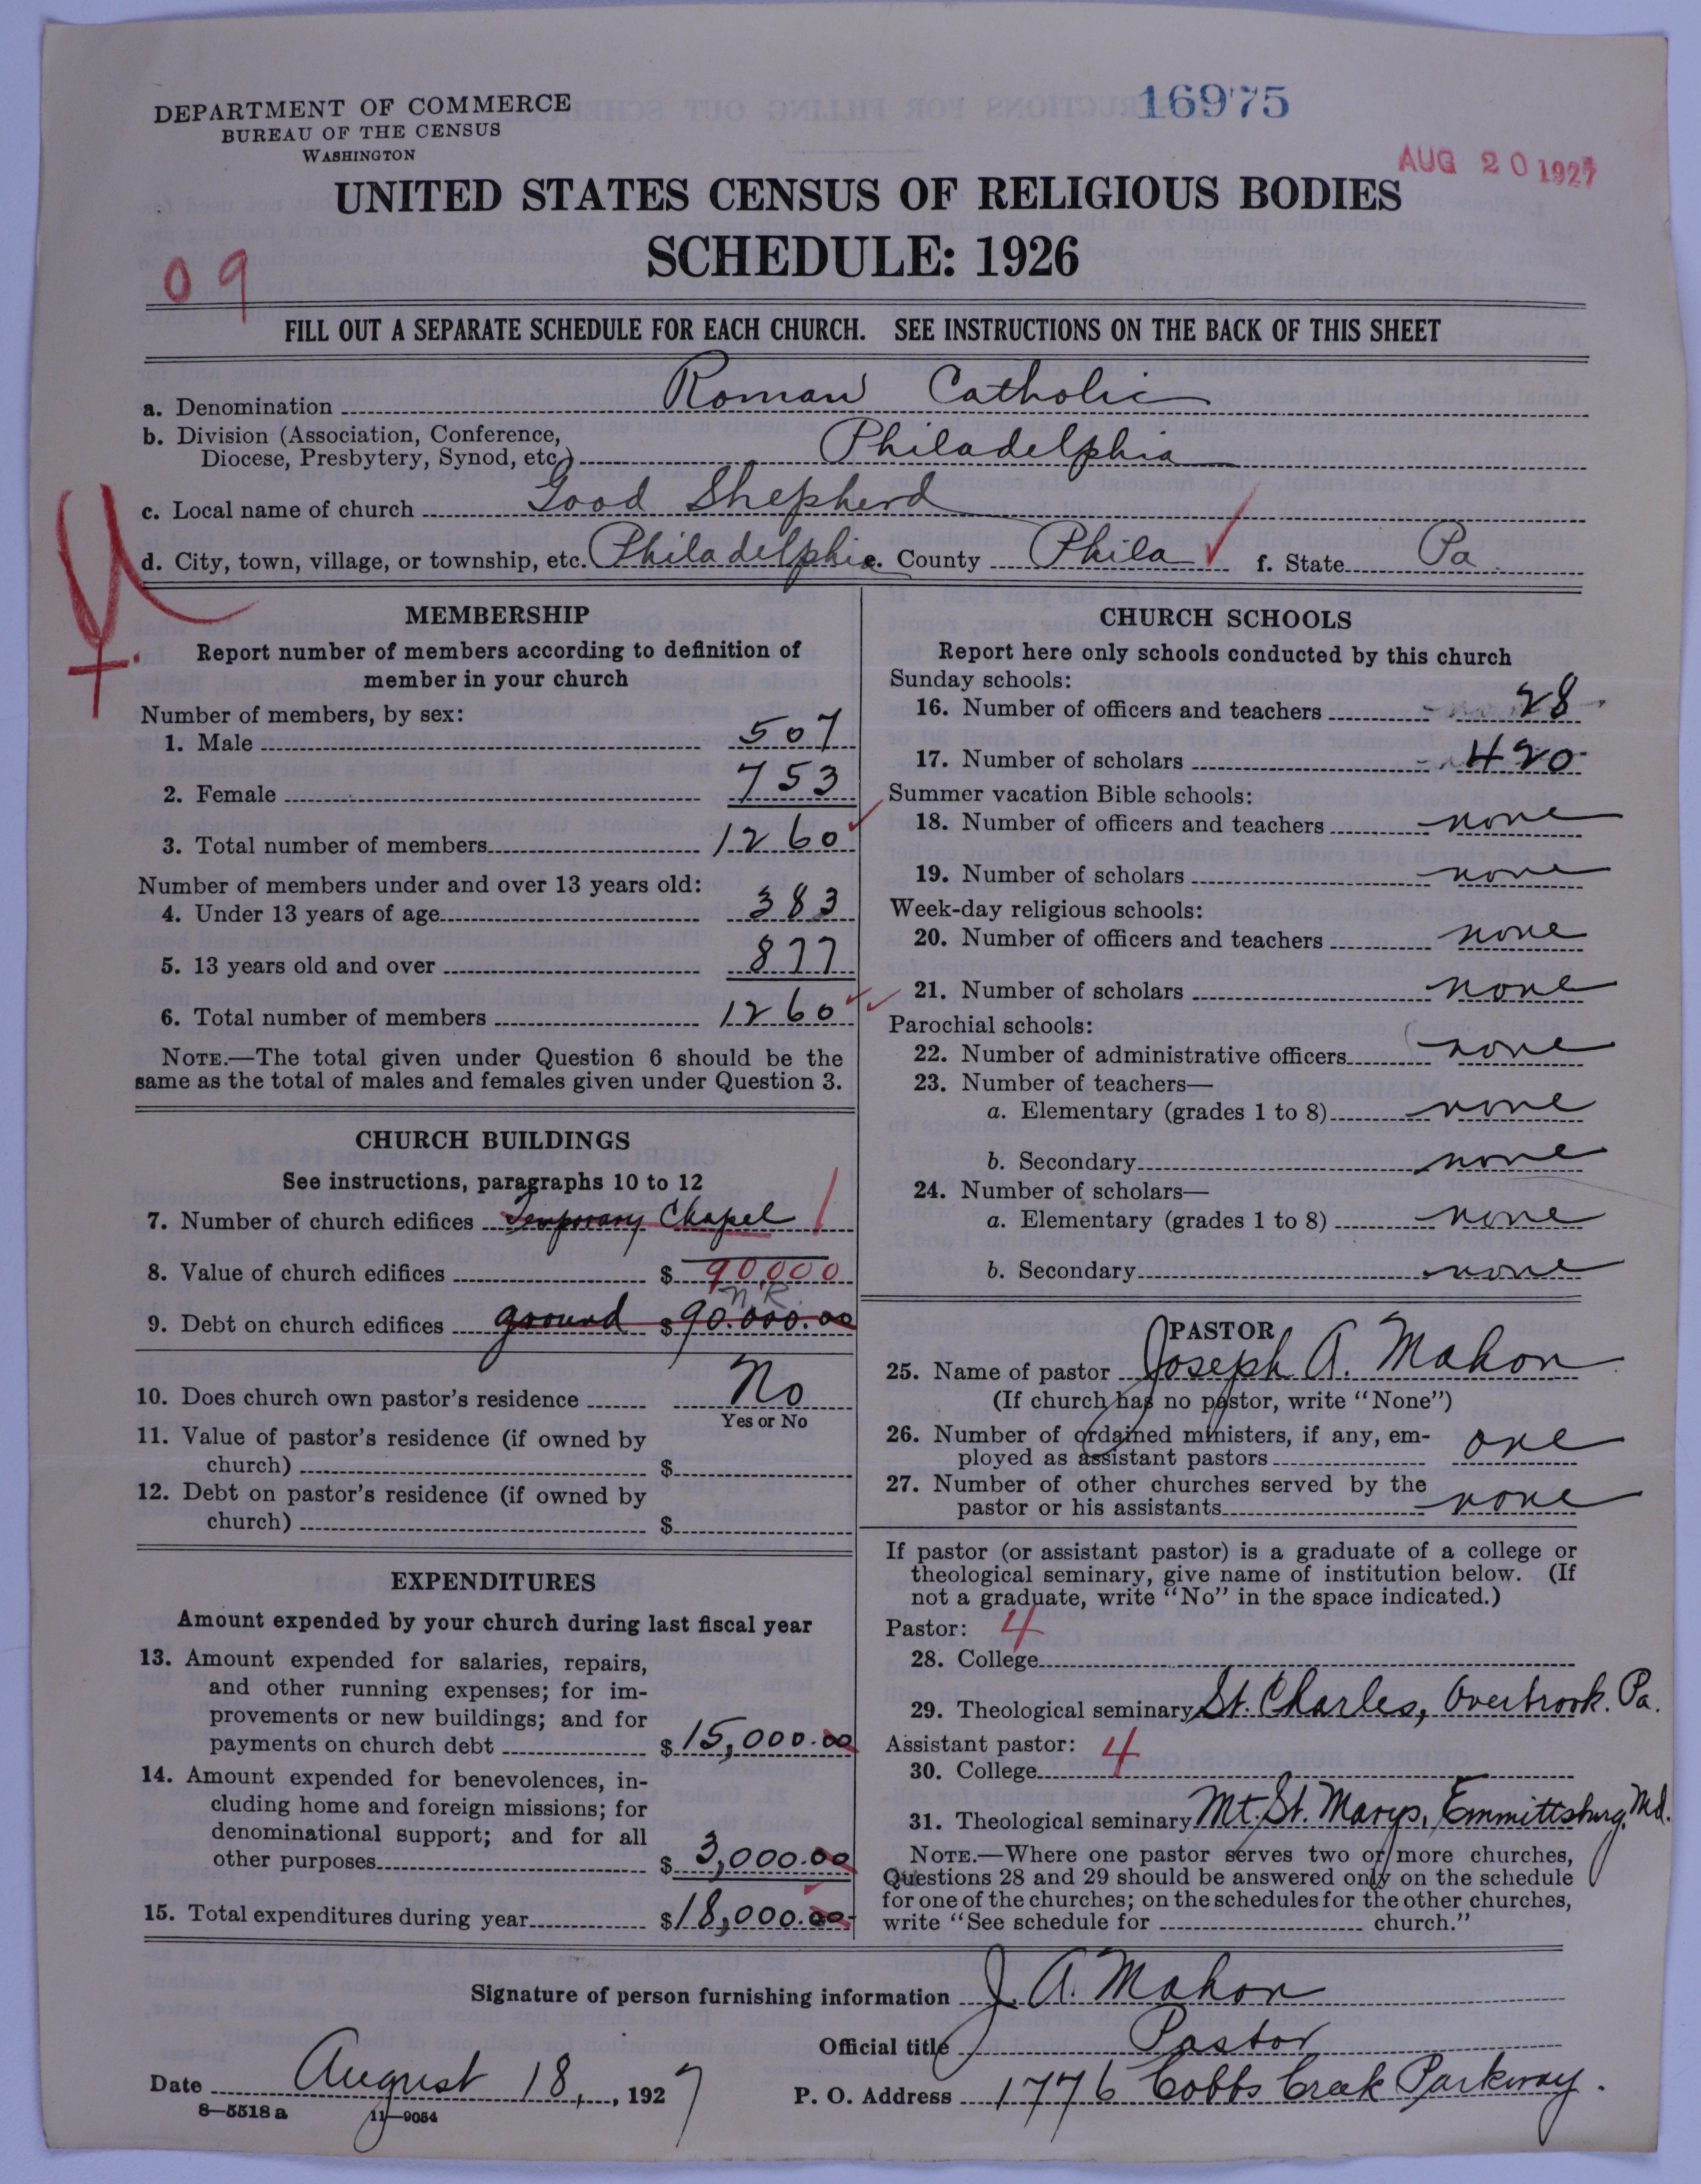 DEPARTMENT OF COMMERCE
BUREAU OF THE CENSUS
WASHINGTON
16975
AUG 20 1927
UNITED STATES CENSUS OF RELIGIOUS BODIES
SCHEDULE: 1926
09
FILL OUT A SEPARATE SCHEDULE FOR EACH CHURCH. SEE INSTRUCTIONS ON THE BACK OF THIS SHEET
a. Denomination Roman Catholic
b. Division (Association, Conference,
Diocese, Presbytery, Synod, etc.) Philadelphia
c. Local name of church Good Shepherd
d. City, town, village, or township, etc. Philadelphia e. County Phila f. State Pa
MEMBERSHIP
Report number of members according to definition of
member in your church
Number of members, by sex:
1. Male 507
2. Female 753
3. Total number of members 1260
Number of members under and over 13 years old:
4. Under 13 years of age 383
5. 13 years old and over 877
6. Total number of members 1260
NOTE.—The total given under Question 6 should be the
same as the total of males and females given under Question 3.
CHURCH BUILDINGS
See instructions, paragraphs 10 to 12
7. Number of church edifices Temporary Chapel 1
8. Value of church edifices $ 90,000
n.R.
9. Debt on church edifices ground $90.000.00
10. Does church own pastor's residence No
Yes or No
11. Value of pastor's residence (if owned by
church) $
12. Debt on pastor's residence (if owned by
church) $
EXPENDITURES
Amount expended by your church during last fiscal year
13. Amount expended for salaries, repairs,
and other running expenses; for im-
provements or new buildings; and for
payments on church debt $ 15,000.00
14. Amount expended for benevolences, in-
cluding home and foreign missions; for
denominational support; and for all
other purposes $ 3,000.00
15. Total expenditures during year $18,000.00
CHURCH SCHOOLS
Report here only schools conducted by this church
Sunday schools:
16. Number of officers and teachers 28
17. Number of scholars 420
Summer vacation Bible schools:
18. Number of officers and teachers none
19. Number of scholars none
Week-day religious schools:
20. Number of officers and teachers none
21. Number of scholars none
Parochial schools:
22. Number of administrative officers none
23. Number of teachers—
a. Elementary (grades 1 to 8) none
b. Secondary none
24. Number of scholars—
a. Elementary (grades 1 to 8) none
b. Secondary none
PASTOR
25. Name of pastor Joseph A. Mahon
(If church has no pastor, write "None")
26. Number of ordained ministers, if any, em-
ployed as assistant pastors one
27. Number of other churches served by the
pastor or his assistants none
If pastor (or assistant pastor) is a graduate of a college or
theological seminary, give name of institution below. (If
not a graduate, write "No" in the space indicated.)
Pastor: 4
28. College
29. Theological seminary St. Charles, Overbrook. Pa.
Assistant pastor: 4
30. College
31. Theological seminary Mt. St. Marys, Emmittsburg, Md.
NOTE.—Where one pastor serves two or more churches,
Questions 28 and 29 should be answered only on the schedule
for one of the churches; on the schedules for the other churches,
write "See schedule for church."
Signature of person furnishing information J. A. Mahon
Official title Pastor
Date August 18, 1927 P. O. Address 1776 Cobbs Creek Parkway.
8—5518 a 11—9054